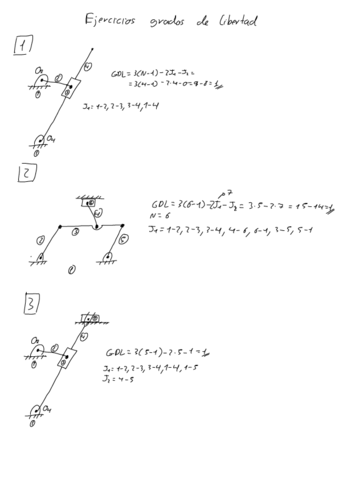 Ejercicios grados de libertad
1
GDL = 3(N-1) - 2J₁ - J₂ =
= 3(4-1) - 2·4 - 0 = 9 - 8 = 1
J₁ = 1-2, 2-3, 3-4, 1-4
O₂
2
3
4
1
O₄
1
2
7
GDL = 3(6-1) - 2J₁ - J₂ = 3·5 - 2·7 = 15 - 14 = 1
N = 6
J₁ = 1-2, 2-3, 3-4, 4-6, 6-1, 3-5, 5-1
2
3
4
5
1
3
GDL = 3(5-1) - 2·5 - 1 = 1
J₁ = 1-2, 2-3, 3-4, 1-4, 1-5
J₂ = 4-5
O₂
2
3
4
1
O₄
1